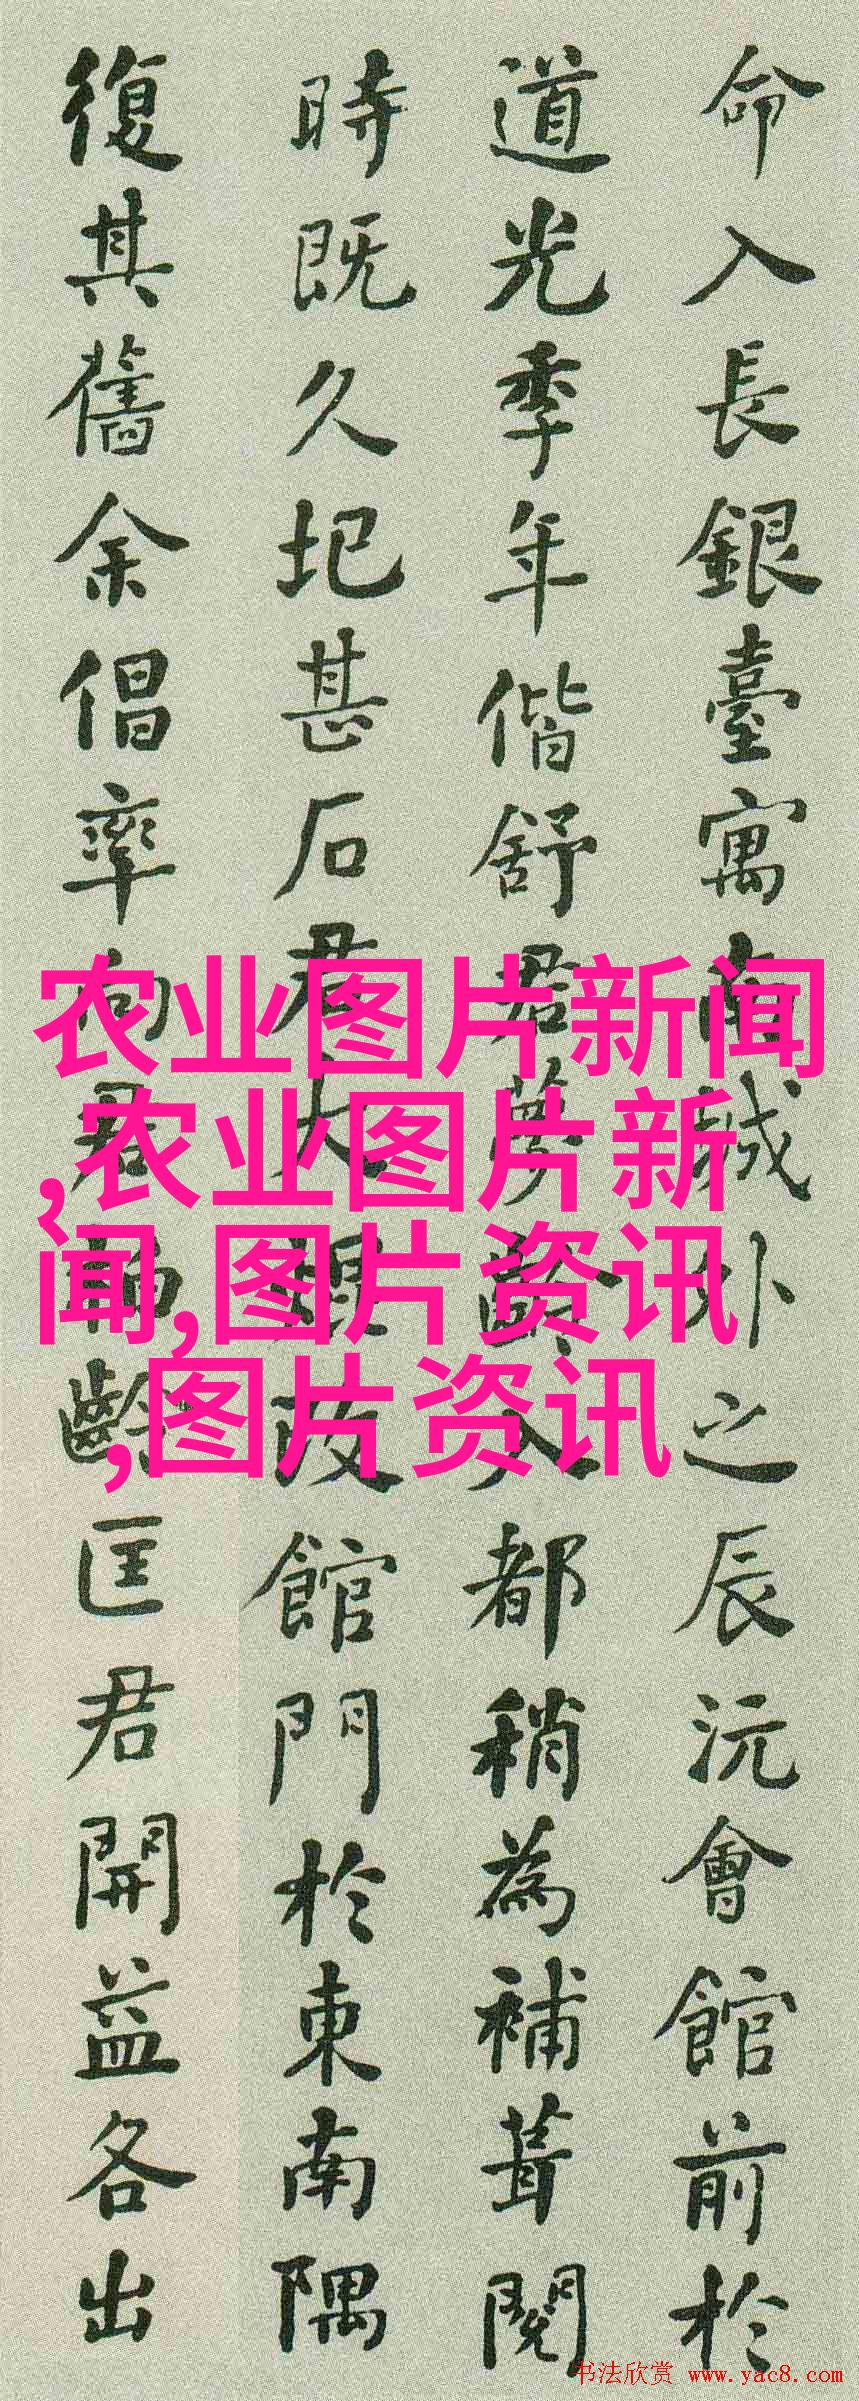 命入長銀臺寓南城外之辰沅會館前於
道光季年偕舒君夢齡入都稍為補葺閱
時既久圯甚石君大改館門於東南隅
復其舊余倡率向君齡匡君開益各出
农业图片新闻
,农业图片新
闻,图片资讯
,图片资讯
书法欣赏 www.yac8.com